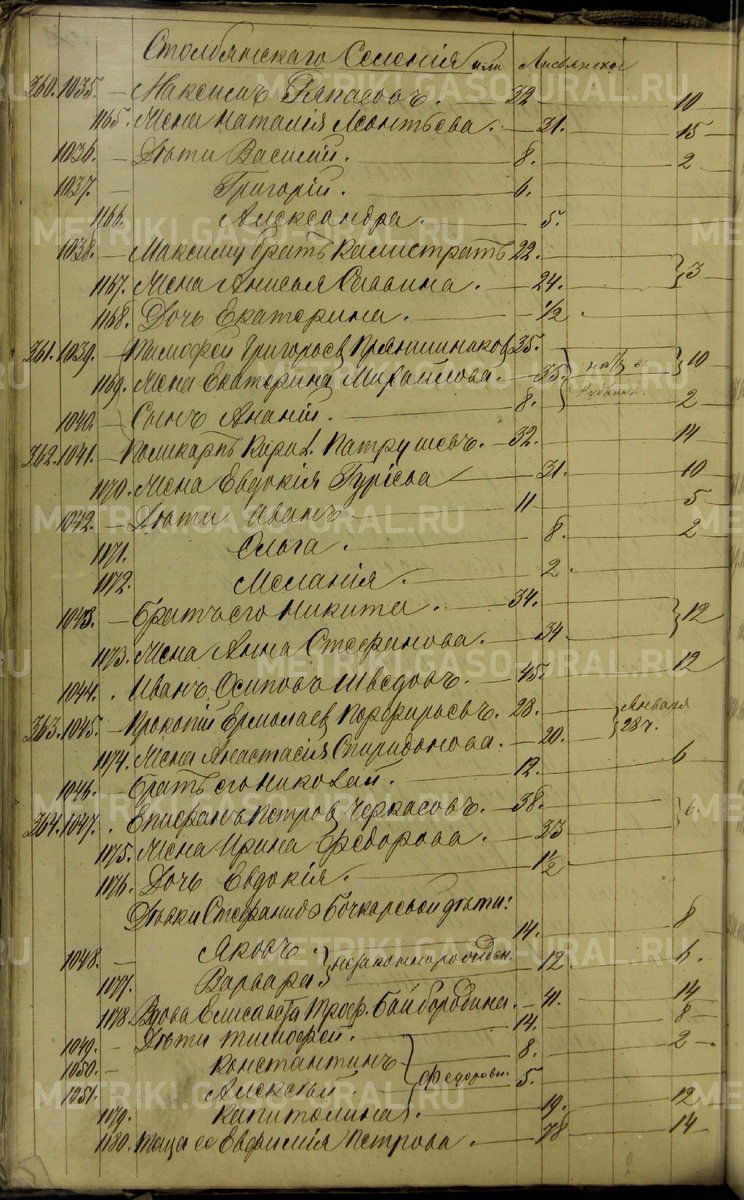 Столбянскаго Селенія или
260. 1035. — Максимъ 32 10
1165. Жена Наталія Леонтьева. 31. 15
1036. — Дѣти Василій. 8. 2
1037. — Григорій. 6.
1166. Александра. 5.
1038. — Максиму братъ Калистратъ 22. 3
1167. Жена Анисья Саввина. 24.
1168. Дочь Екатерина. 1/2
261. 1039. — Тимофей Григорьев Прянишников 35. 10
1169. Жена Екатерина Михаилова. 35
1040. Сынъ Ананій. 8. 2
262. 1041. — Поликарпъ Патрушевъ. 32. 14
1170. Жена Евдокія Гуріева 31. 10
1042. — Дѣти Иванъ 11 5
1171. Ольга. 8. 2
1172. Меланія. 2.
1043. — Братъ его Никита 34. 12
1173. Жена Анна Стефанова. 34
1044. Иванъ Осиповъ Шведовъ. 45. 12
263. 1045. — Прокопій Ермолаев Порфирьевъ. 28. Января 28 ч.
1174. Жена Анастасія Спиридонова. 20. 6
1046. — Братъ его Николай. 12.
264. 1047. Епифанъ Петров Черкасовъ. 38. 6.
1175. Жена Ирина Ѳедорова. 33
1176. Дочь Евдокія. 1 1/2
Дѣвки Стефаниды Бочкаревой дѣти:
1048. — Яковъ. незаконнорожден. 14. 8
1177. Варвара 12. 6
1178. Вдова Елисавета Троф. Байбородина. 41. 14
1049. — Дѣти Тимофей. 14. 8
1050. — Константинъ Федоровы. 8. 2
1051. Алексѣй. 5.
1179. Капитолина. 19. 12
1180. Евфимія Петрова. 78 14
METRIKI.GASO-URAL.RU